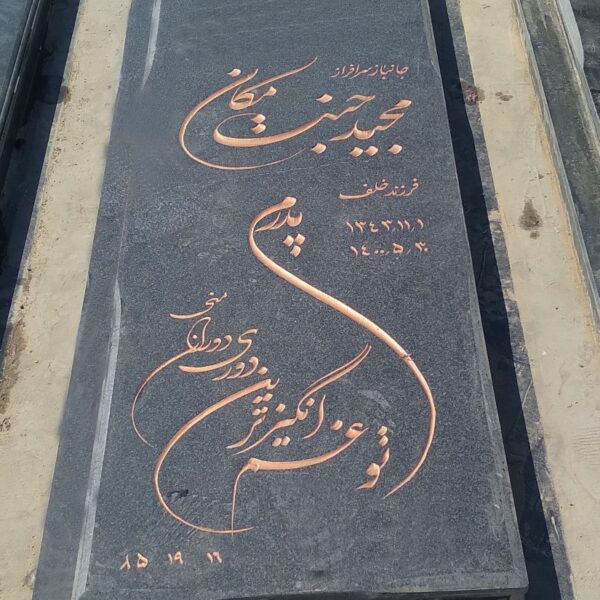 جانباز سرافراز
مجید جنت مکان
فرزند خلف
۱۳۴۳٫۱۱٫۱
۱۴۰۰٫۵٫۳۰
پدرم
تو غم انگیزترین
دوری دوران منی
۸۵ ۱۹ ۱۶